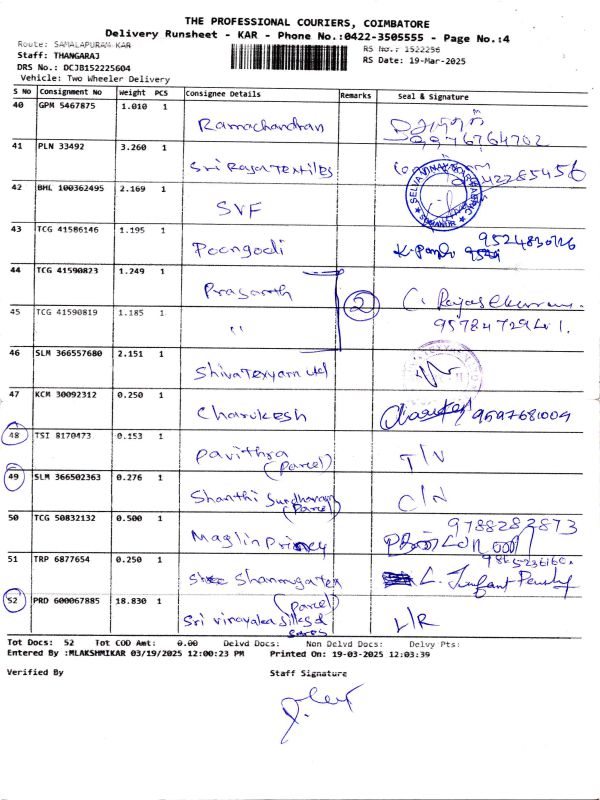 THE PROFESSIONAL COURIERS, COIMBATORE
Delivery Runsheet - KAR - Phone No.:0422-3505555 - Page No.:4
Route: SAMALAPURAM KAR
RS No.: 1522256
Staff: THANGARAJ
RS Date: 19-Mar-2025
DRS No.: DCJB152225604
Vehicle: Two Wheeler Delivery
S No Consignment No Weight PCS Consignee Details Remarks Seal & Signature
40 GPM 5467875 1.010 1
Ramachandran
9976764702
41 PLN 33492 3.260 1
Sri Raja Textiles
42 BHL 100362495 2.169 1
SVF
43 TCG 41586146 1.195 1
Poongodi
44 TCG 41590823 1.249 1
Prasanth 2 C. Rajasekaran
45 TCG 41590819 1.185 1
"
46 SLM 366557680 2.151 1
Shiva Texyarn Ltd
47 KCM 30092312 0.250 1
Charukesh 9597681004
48 TSI 8170473 0.153 1
Pavithra T/N
(Parcel)
49 SLM 366502363 0.276 1
Shanthi C/N
(Parcel)
50 TCG 50832132 0.500 1
9788282873
51 TRP 6877654 0.250 1
52 PRD 600067885 18.830 1
(Parcel)
Sri Vinayaka Silks L/R
Tot Docs: 52 Tot COD Amt: 0.00 Delvd Docs: Non Delvd Docs: Delvy Pts:
Entered By :MLAKSHMIKAR 03/19/2025 12:00:23 PM Printed On: 19-03-2025 12:03:39
Verified By Staff Signature